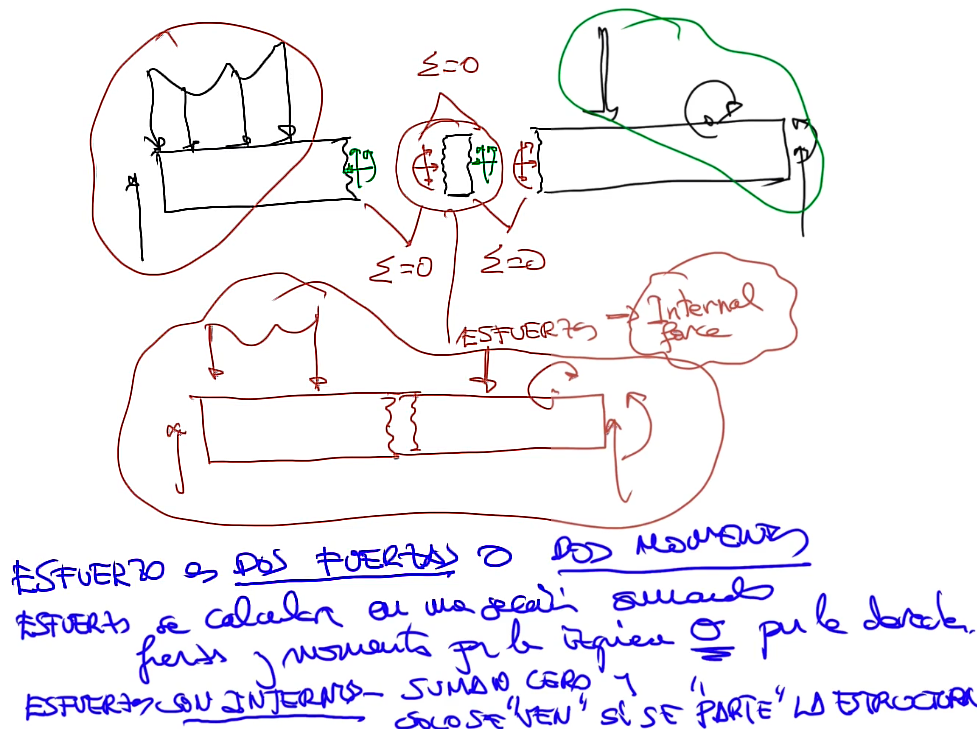 Σ=0
Σ=0 Σ=0
ESFUERZO → Internal
force
ESFUERZO es DOS FUERZAS O DOS MOMENTOS
ESFUERZO se calculan en una sección sumando
fuerzas y momentos por la izquierda O por la derecha.
ESFUERZOS SON INTERNOS - SUMAN CERO Y
SOLO SE "VEN" SI SE "PARTE" LA ESTRUCTURA